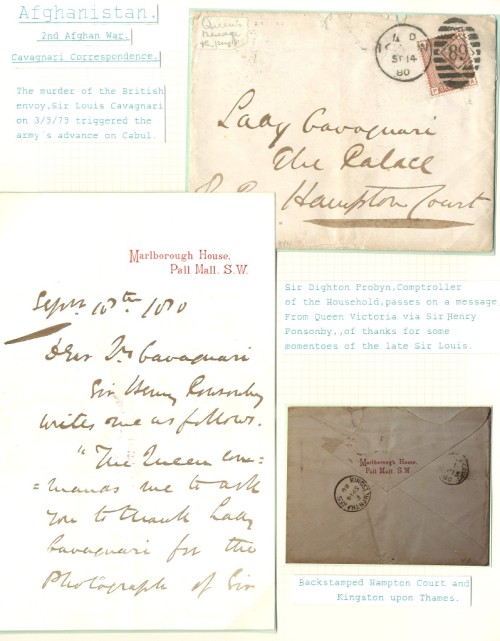 Afghanistan.
2nd Afghan War.
Cavagnari Correspondence.
The murder of the British
envoy,Sir Louis Cavagnari
on 3/9/79 triggered the
army's advance on Cabul.
Queen's
message
4 D
SP 14
80
89
Lady Cavagnari
The Palace
Hampton Court
Marlborough House.
Pall Mall. S.W.
Septr 13th 1880
Dear Lady Cavagnari
Sir Henry Ponsonby
writes me as follows.
"The Queen com=
=mands me to ask
you to thank Lady
Cavagnari for the
Photograph of Sir
Sir Dighton Probyn,Comptroller
of the Household,passes on a message
From Queen Victoria via Sir Henry
Ponsonby,,of thanks for some
momentoes of the late Sir Louis.
Marlborough House.
Pall Mall. S.W.
Backstamped Hampton Court and
Kingston upon Thames.